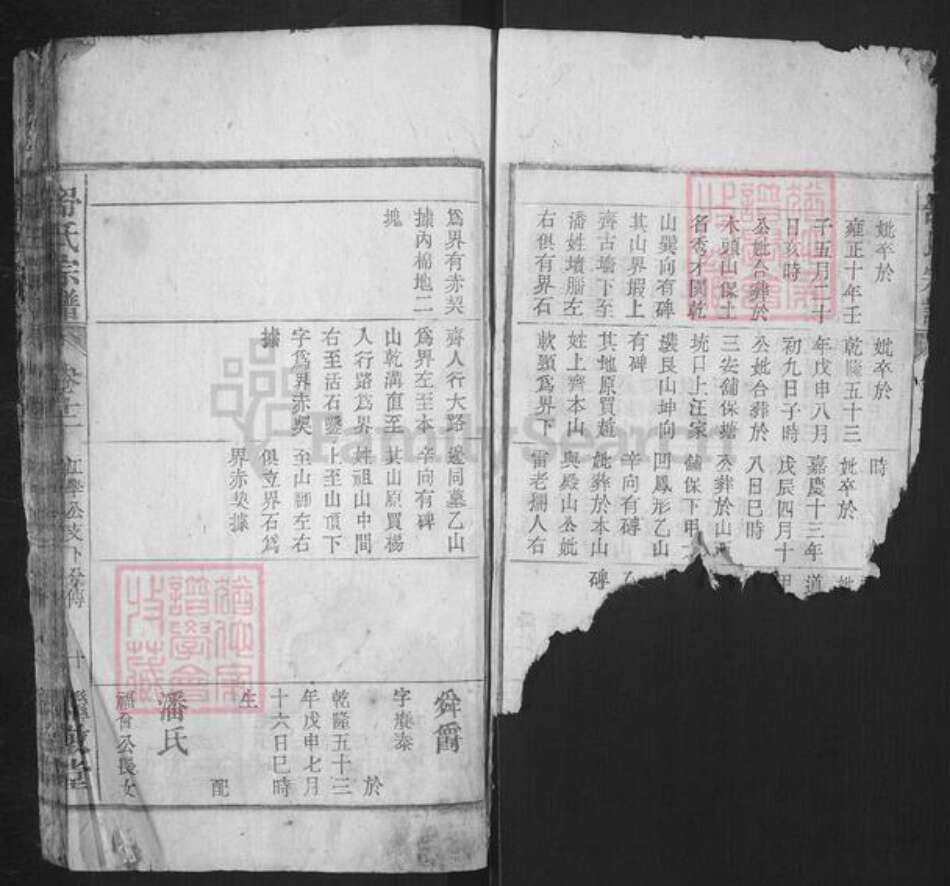 妣卒於
雍正十年壬
子五月二十
日亥時
公妣合葬於
木頭山保土
名秀才園乾
山巽向有碑
其山界瑕上
齊古墻下至
潘姓墳腦左
右俱有界石
妣卒於
乾隆五十三
年戊申八月
初九日子時
公妣合葬於
三安舖保塘
坑口上汪家
艮山坤向
有碑
其地原買趙
姓上齊本山
軟頸為界下
時
妣卒於
嘉慶十三年
戊辰四月十
八日巳時
公葬於山
舖保下甲
回鳳形乙山
辛向有磚
妣葬於本山
與殿山公妣
雷老掤人右
妣
道
甲
乙
磚
為界有赤契
據內棉地二
塊
齊人行大路
為界左至本
山乾溝直至
人行路為界
右至活石鑿
字為界赤契
據
塋同墓乙山
辛向有碑
其山原買楊
姓祖山中間
上至山頂下
至山腳左右
俱立界石為
界赤契據
舜爵
字賡泰
於
乾隆五十三
年戊申七月
十六日巳時
生
配
潘氏
福會公長女
舒氏宗譜
卷十二
公支下
十
FamilySearch
譜學會
收藏